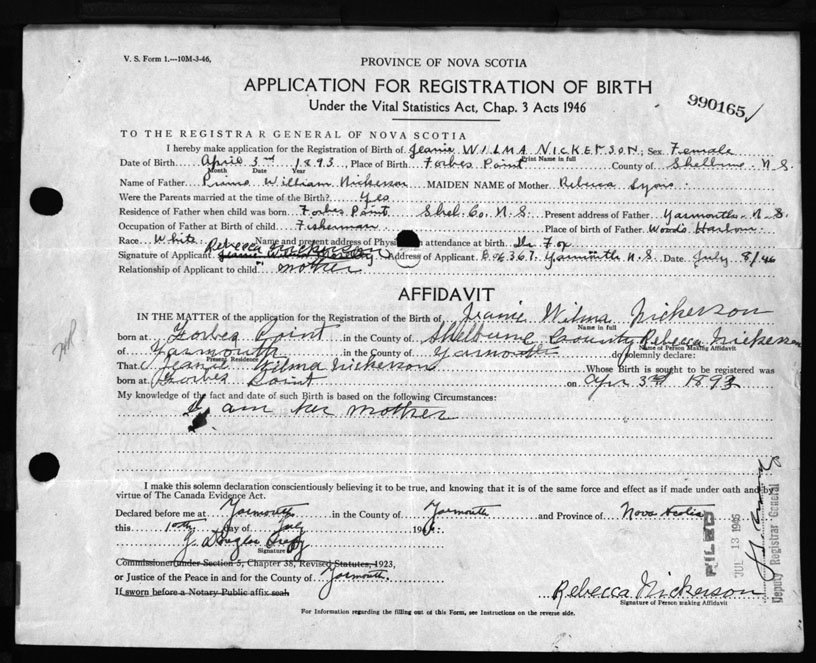 V. S. Form 1.—10M-3-46,
PROVINCE OF NOVA SCOTIA
APPLICATION FOR REGISTRATION OF BIRTH
Under the Vital Statistics Act, Chap. 3 Acts 1946
990165
TO THE REGISTRAR GENERAL OF NOVA SCOTIA
I hereby make application for the Registration of Birth of Jeanie WILMA NICKERSON; Sex Female
Print Name in full
Date of Birth April 3rd 1893, Place of Birth Forbes Point County of Shelburne N.S.
Month Date Year
Name of Father William Nickerson MAIDEN NAME of Mother Rebecca Lyons
Were the Parents married at the time of the Birth? Yes
Residence of Father when child was born Forbes Point Shel. Co. N.S. Present address of Father Yarmouth N.S.
Occupation of Father at Birth of child Fisherman Place of birth of Father Woods Harbour
Race White Name and present address of Physician in attendance at birth Dr Fox
Signature of Applicant Rebecca Nickerson Address of Applicant Box 367 Yarmouth N.S. Date July 8/46
Relationship of Applicant to child mother
AFFIDAVIT
IN THE MATTER of the application for the Registration of the Birth of Jeanie Wilma Nickerson
Name in full
born at Forbes Point in the County of Shelburne County Rebecca Nickerson
Name of Person Making Affidavit
of Yarmouth in the County of Yarmouth do solemnly declare:
Present Residence
That Jeanie Wilma Nickerson Whose Birth is sought to be registered was
born at Forbes Point on Apr 3rd 1893
My knowledge of the fact and date of such Birth is based on the following Circumstances:
I am her mother
I make this solemn declaration conscientiously believing it to be true, and knowing that it is of the same force and effect as if made under oath and by
virtue of The Canada Evidence Act.
Declared before me at Yarmouth in the County of Yarmouth and Province of Nova Scotia
this 10th day of July 1946
Signature
Commissioner (under Section 5, Chapter 38, Revised Statutes, 1923,
or Justice of the Peace in and for the County of Yarmouth
If sworn before a Notary Public affix seal
Rebecca Nickerson
Signature of Person making Affidavit
For Information regarding the filling out of this Form, see Instructions on the reverse side.
FILED
JUL 13 1946
Deputy Registrar General